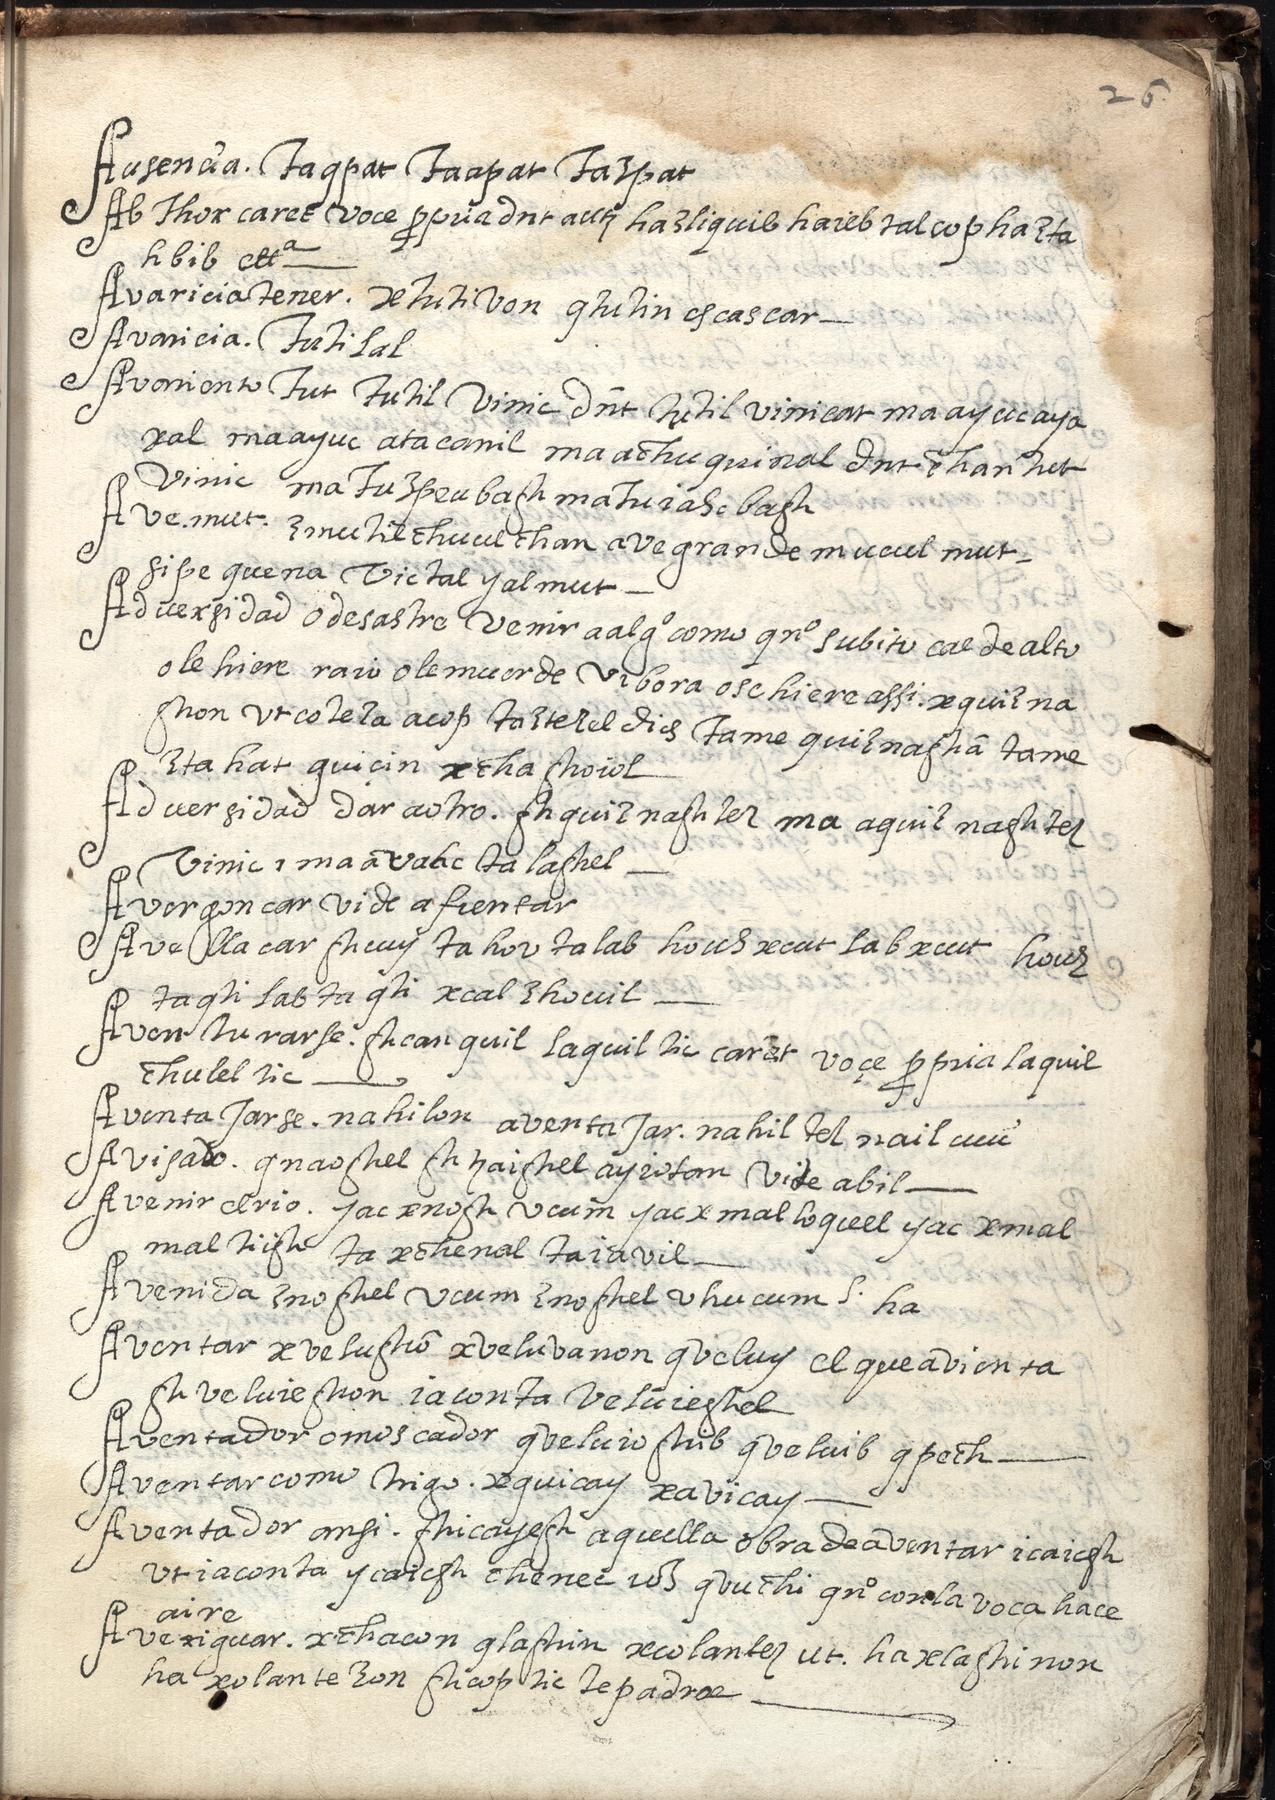 26.
Ausençia. Taqpat Taapat Taɜpat
Ab Thor caret voce ꝓpria dnt autẽ haɜliquib haieb talcop haɛta
hbib ettª
Avaricia tener. xtutivon qtutin escascar
Avaricia. Tutilal
Avariento Tut Tutil vinic dñt tutil vinicat maayuc aya
xal maayuc atacanil maachuquinal dnt chan tut
vinic matuɜpeubagh matuiaɜcbagh
Ave. mut. ɛmutil chucul chan ave grande mucul mut
si pequena victal yalmut
Adversidad o desastre venir a algº como qnº subito cae de alto
o le hiere raio o le muerde vibora o se hiere assi. xquiɛna
ghon vt coleɛa acop taɛteɛel dies tame quiɛnaghã tame
ɛtahat quicin xchaghoiol
Adversidad dar a otro. ghquiɛnaghteɜ ma aquiɛnaghteɜ
vinic ı ma avatic talaghel
Avergonçar vide afrentar
Avellacar ghuuy tahov talab houɜ xcut lab xcut houɜ
taqti lab taqti xcal ɛhouil
Aventurarse. ghcanquil laquiltic caret voçe ꝓpria laquil
chuleltic
Aventajarse. nahilon aventajar. nahilteɜ nail
Avisado. qnaoghel ayiotan vide abil
Avenir el rio. yacxnogh ucum yacxmalloqueel yac xmal
maltigh ta xchenal taiavil
Avenida ɛnoghel ucum ɛnoghel vhucum l. ha
Aventar xvelughõ xveluvanon qveluy el que avienta
ghveluieghon iaconta veluieghel
Aventador o moscador qveluioghib qveluib qpech
Aventar como trigo. xquicay xavicay
Aventador ansi. ghicayegh aquella obra de aventar icaiegh
vt iaconta ycaiegh chenec ioɜ qvuchi qnº con la voca hace
aire
Averiguar. xchacon qlaghin xcolanteɜ ut. haxlaghinon
ha xolanteɜon ghcoptic te padre